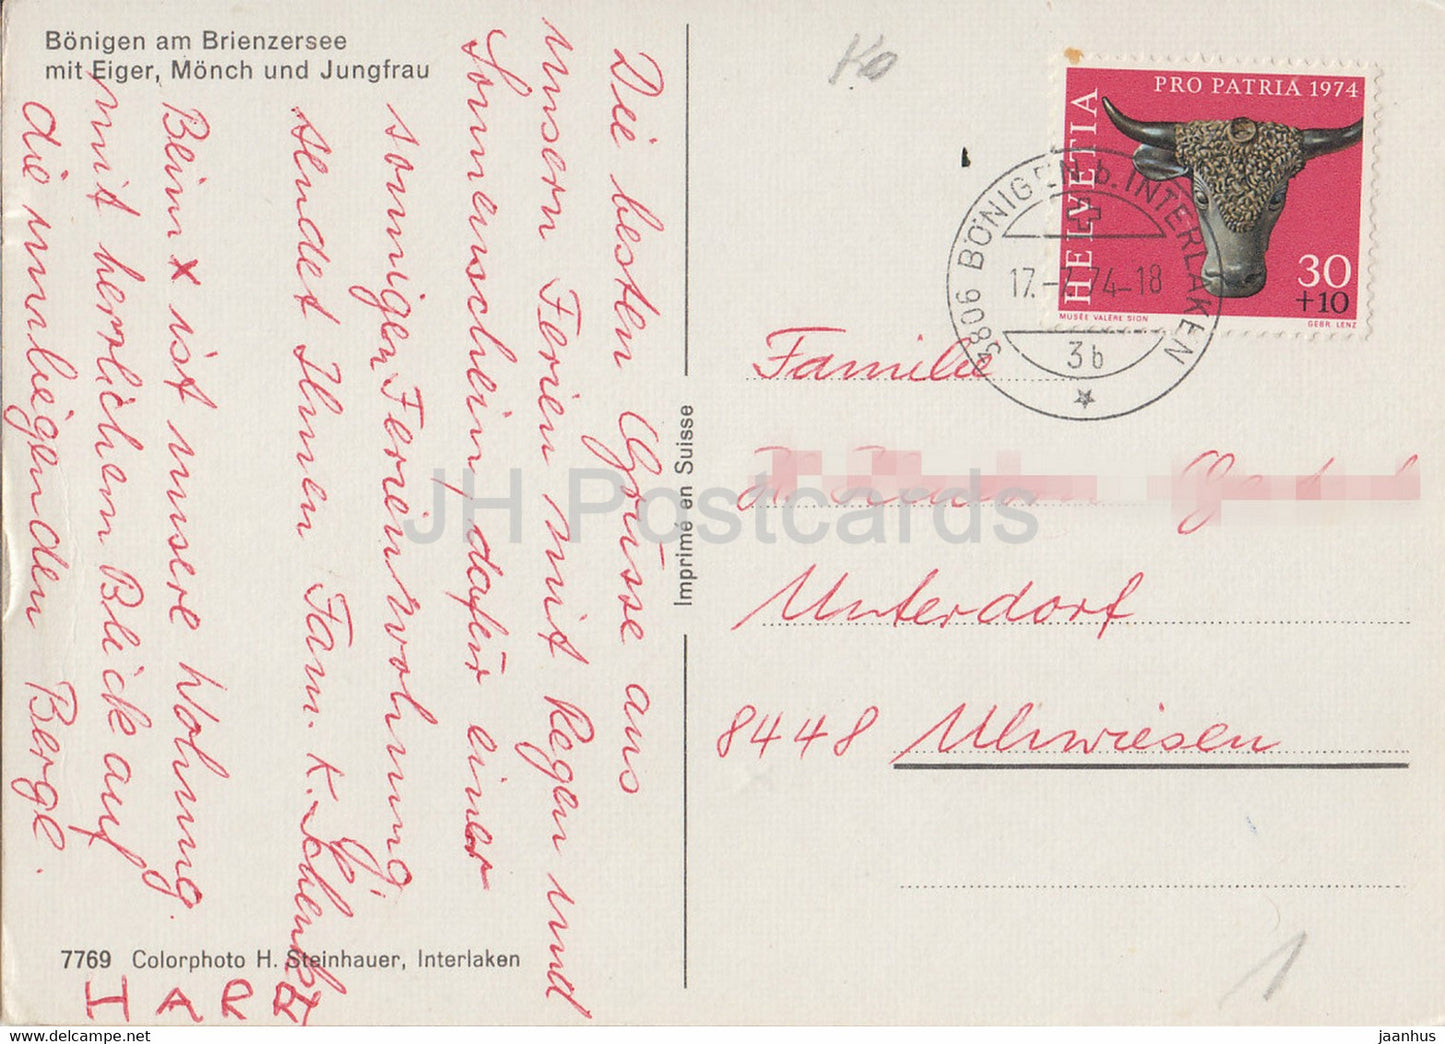 Bönigen am Brienzersee
mit Eiger, Mönch und Jungfrau
Die besten Grüsse aus
unsern Ferien mit Regen und
Sonnenschein, dafür einer
sonnigen Ferienwohnung,
sendet Ihnen Fam. K. Schenk
Beim x ist unsere Wohnung.
mit herrlichem Blick auf
die umliegenden Berge.
7769 Colorphoto H. Steinhauer, Interlaken
Imprimé en Suisse
JH Postcards
Ko
HELVETIA
PRO PATRIA 1974
30
+10
MUSÉE VALÈRE SION
GEBR. LENZ
3806 BÖNIGEN b. INTERLAKEN
17.-7.74-18
3b
Familie
Unterdorf
8448 Uhwiesen
1
jaanhus